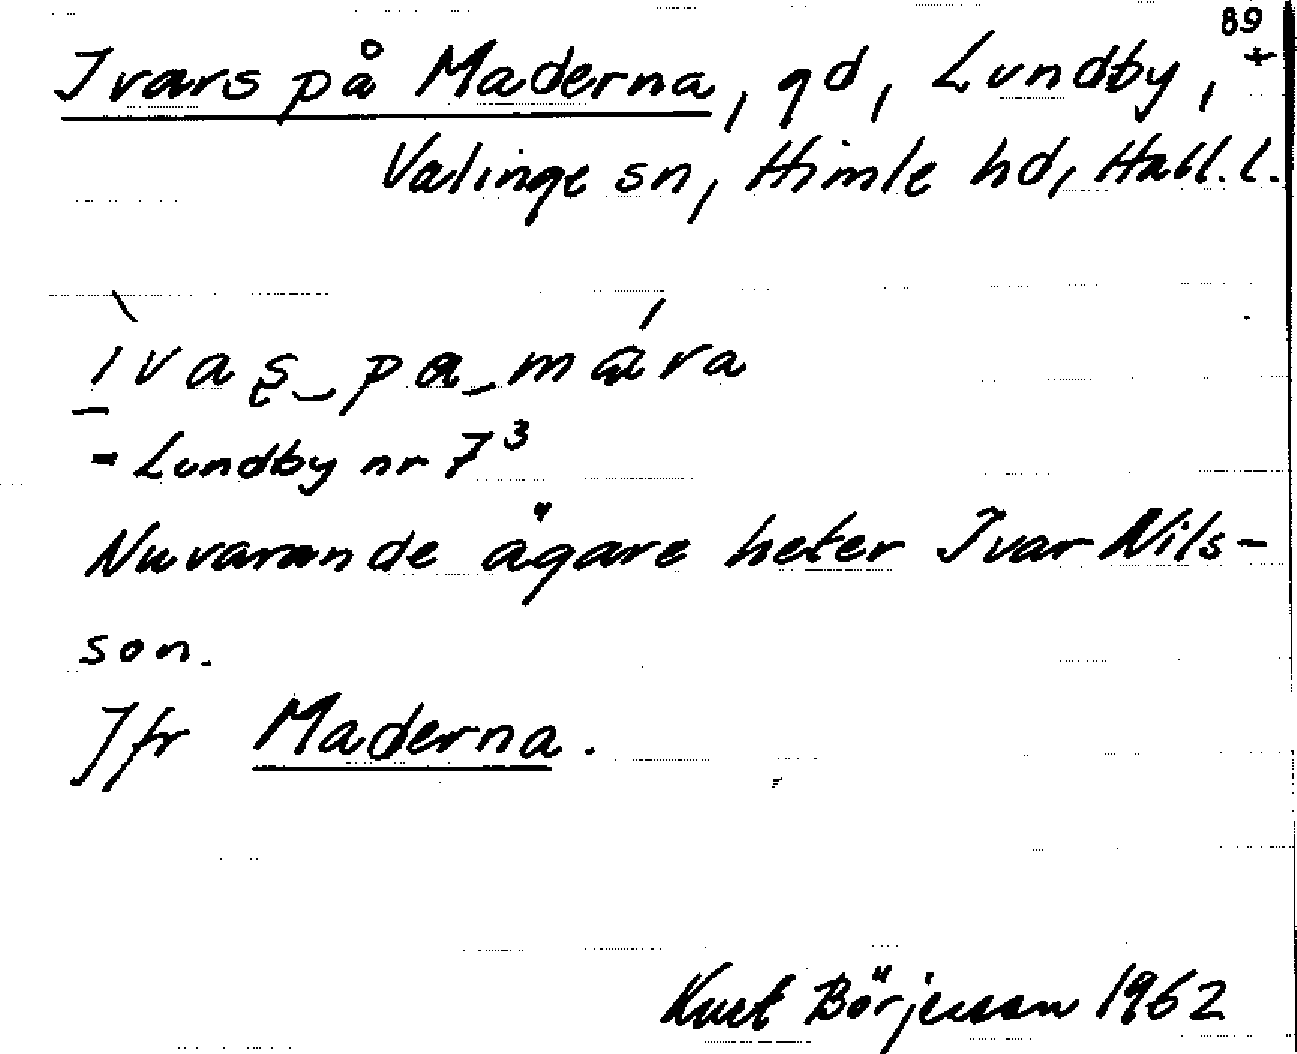 89
Ivars på Maderna, gd, Lundby, +
Valinge sn, Himle hd, Hall. l.
ìvaş_pa_mára
= Lundby nr 7³
Nuvarande ägare heter Ivar Nils-
son.
Jfr Maderna.
Kurt Börjesson 1962